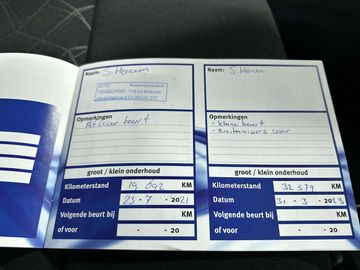 Naam: S. Hemen
Opmerkingen
Aflever beurt
groot / klein onderhoud
Kilometerstand 19 092 KM
Datum 23 - 7 - 2021
Volgende beurt bij KM
of voor - - 20
Naam: S. Hemen
Opmerkingen
- Kleine beurt
- Ruitenwissers voor
groot / klein onderhoud
Kilometerstand 32 579 KM
Datum 31 - 3 - 2023
Volgende beurt bij KM
of voor - - 20